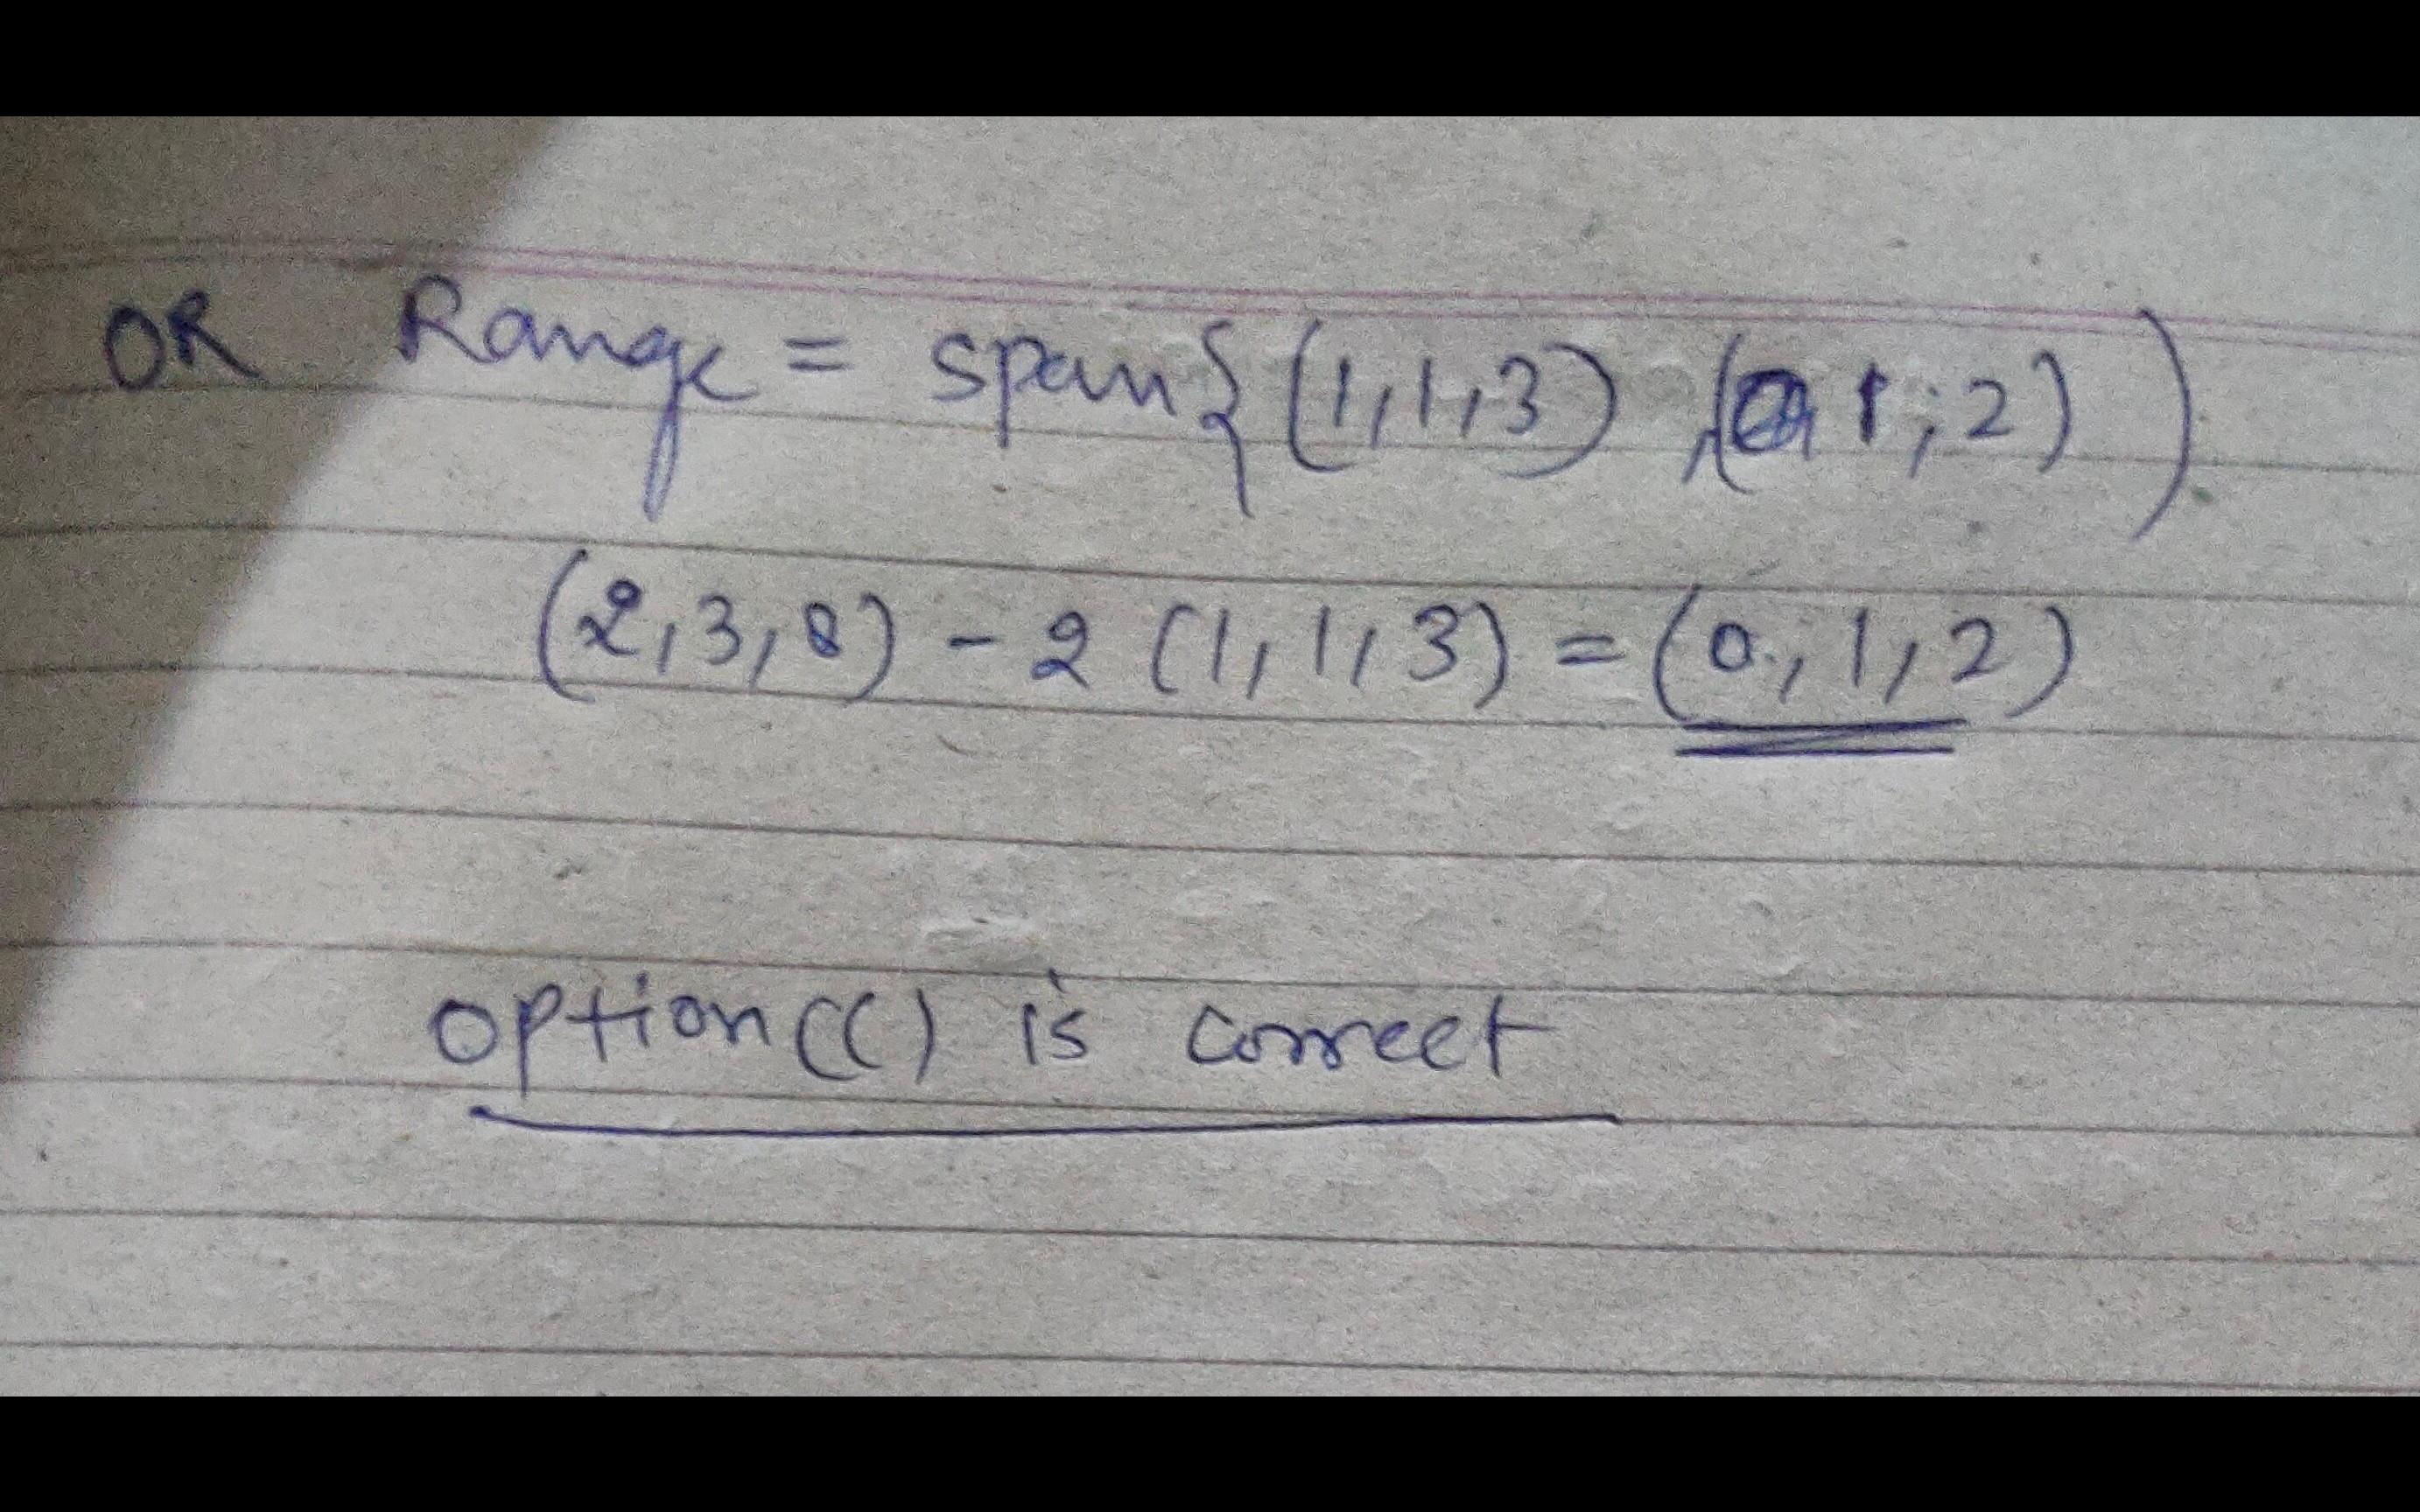 OR Range = span{(1,1,3), (0, 1, 2))
(2,3,8) - 2 (1,1,3) = (0,1,2)
option(C) is correct